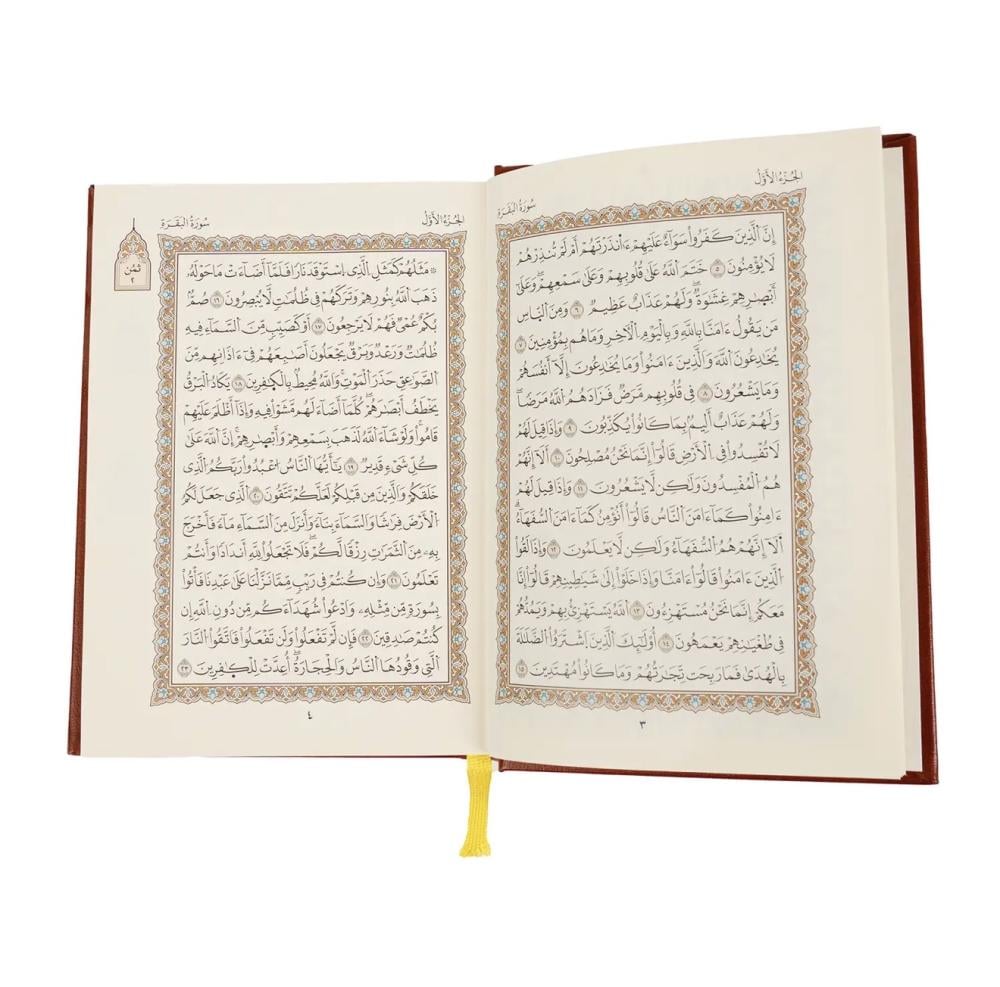 سُورَةُ البَقَرَةِ
الجُزْءُ الأَوَّلُ
إِنَّ اَلذِينَ كَفَرُواْ سَوَآءٌ عَلَيْهِمْ ءَآنذَرْتَهُمْ أَمْ لَمْ تُنذِرْهُمْ
لَا يُؤْمِنُونَ ٥ خَتَمَ اَللَّهُ عَلَىٰ قُلُوبِهِمْ وَعَلَىٰ سَمْعِهِمْ وَعَلَىٰ
أَبْصَٰرِهِمْ غِشَٰوَةٌ وَلَهُمْ عَذَابٌ عَظِيمٌ ٦ وَمِنَ اَلنَّاسِ
مَنْ يَقُولُ ءَامَنَّا بِاللَّهِ وَبِالْيَوْمِ اِلْأٓخِرِ وَمَا هُم بِمُؤْمِنِينَ ٧
يُخَٰدِعُونَ اَللَّهَ وَالذِينَ ءَامَنُواْ وَمَا يُخَٰدِعُونَ إِلَّا أَنفُسَهُمْ
وَمَا يَشْعُرُونَ ٨ فِي قُلُوبِهِم مَّرَضٌ فَزَادَهُمُ اُللَّهُ مَرَضًا
وَلَهُمْ عَذَابٌ أَلِيمٌ بِمَا كَانُواْ يُكَذِّبُونَ ٩ وَإِذَا قِيلَ لَهُمْ
لَا تُفْسِدُواْ فِي اِلْأَرْضِ قَالُواْ إِنَّمَا نَحْنُ مُصْلِحُونَ ١٠ أَلَا إِنَّهُمْ
هُمُ اُلْمُفْسِدُونَ وَلَٰكِن لَّا يَشْعُرُونَ ١١ وَإِذَا قِيلَ لَهُمْ
ءَامِنُواْ كَمَا ءَامَنَ اَلنَّاسُ قَالُواْ أَنُؤْمِنُ كَمَا ءَامَنَ اَلسُّفَهَآءُ
أَلَا إِنَّهُمْ هُمُ اُلسُّفَهَآءُ وَلَٰكِن لَّا يَعْلَمُونَ ١٢ وَإِذَا لَقُواْ
اُلذِينَ ءَامَنُواْ قَالُواْ ءَامَنَّا وَإِذَا خَلَوْاْ إِلَىٰ شَيَٰطِينِهِمْ قَالُواْ إِنَّا
مَعَكُمْ إِنَّمَا نَحْنُ مُسْتَهْزِءُونَ ١٣ اَللَّهُ يَسْتَهْزِئُ بِهِمْ وَيَمُدُّهُمْ
فِي طُغْيَٰنِهِمْ يَعْمَهُونَ ١٤ أُوْلَٰئِكَ اَلذِينَ اَشْتَرَوُاْ اُلضَّلَٰلَةَ
بِالْهُدَىٰ فَمَا رَبِحَت تِّجَٰرَتُهُمْ وَمَا كَانُواْ مُهْتَدِينَ ١٥
٣
سُورَةُ البَقَرَةِ
الجُزْءُ الأَوَّلُ
ثُمُن
٢
مَثَلُهُمْ كَمَثَلِ اِلذِي اِسْتَوْقَدَ نَارًا فَلَمَّا أَضَآءَتْ مَا حَوْلَهُۥ
ذَهَبَ اَللَّهُ بِنُورِهِمْ وَتَرَكَهُمْ فِي ظُلُمَٰتٍ لَّا يُبْصِرُونَ ١٦ صُمٌّ
بُكْمٌ عُمْيٌ فَهُمْ لَا يَرْجِعُونَ ١٧ أَوْ كَصَيِّبٍ مِّنَ اَلسَّمَآءِ فِيهِ
ظُلُمَٰتٌ وَرَعْدٌ وَبَرْقٌ يَجْعَلُونَ أَصَٰبِعَهُمْ فِي ءَاذَانِهِم مِّنَ
اَلصَّوَٰعِقِ حَذَرَ اَلْمَوْتِ وَاللَّهُ مُحِيطٌ بِالْكَٰفِرِينَ ١٨ يَكَادُ اُلْبَرْقُ
يَخْطَفُ أَبْصَٰرَهُمْ كُلَّمَا أَضَآءَ لَهُم مَّشَوْاْ فِيهِ وَإِذَا أَظْلَمَ عَلَيْهِمْ
قَامُواْ وَلَوْ شَآءَ اَللَّهُ لَذَهَبَ بِسَمْعِهِمْ وَأَبْصَٰرِهِمْ إِنَّ اَللَّهَ عَلَىٰ
كُلِّ شَيْءٍ قَدِيرٌ ١٩ يَٰأَيُّهَا اَلنَّاسُ اُعْبُدُواْ رَبَّكُمُ اُلذِي
خَلَقَكُمْ وَالذِينَ مِن قَبْلِكُمْ لَعَلَّكُمْ تَتَّقُونَ ٢٠ اَلذِي جَعَلَ لَكُمُ
اُلْأَرْضَ فِرَٰشًا وَالسَّمَآءَ بِنَآءً وَأَنزَلَ مِنَ اَلسَّمَآءِ مَآءً فَأَخْرَجَ
بِهِۦ مِنَ اَلثَّمَرَٰتِ رِزْقًا لَّكُمْ فَلَا تَجْعَلُواْ لِلهِ أَندَادًا وَأَنتُمْ
تَعْلَمُونَ ٢١ وَإِن كُنتُمْ فِي رَيْبٍ مِّمَّا نَزَّلْنَا عَلَىٰ عَبْدِنَا فَأْتُواْ
بِسُورَةٍ مِّن مِّثْلِهِۦ وَادْعُواْ شُهَدَآءَكُم مِّن دُونِ اِللَّهِ إِن
كُنتُمْ صَٰدِقِينَ ٢٢ فَإِن لَّمْ تَفْعَلُواْ وَلَن تَفْعَلُواْ فَاتَّقُواْ اُلنَّارَ
اَلتِي وَقُودُهَا اَلنَّاسُ وَالْحِجَارَةُ أُعِدَّتْ لِلْكَٰفِرِينَ ٢٣
٤